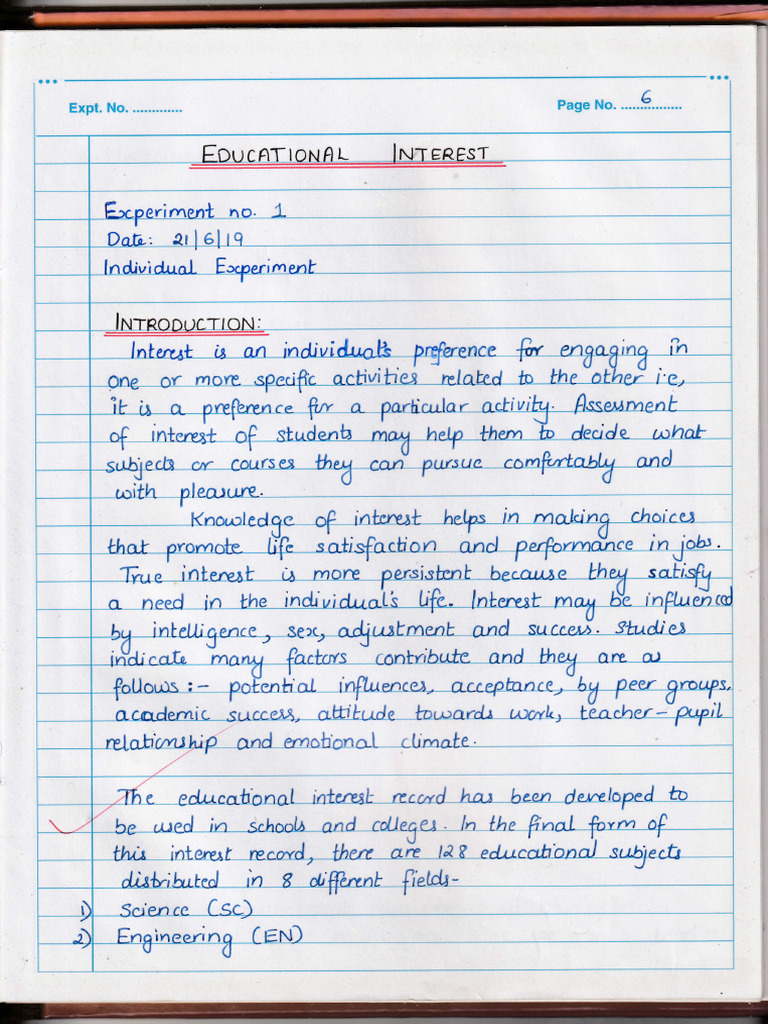 Expt. No. .............
Page No. ....6............
EDUCATIONAL INTEREST
Experiment no. 1
Date: 21/6/19
Individual Experiment
INTRODUCTION:
Interest is an individual's preference for engaging in
one or more specific activities related to the other i.e,
it is a preference for a particular activity. Assessment
of interest of students may help them to decide what
subjects or courses they can pursue comfortably and
with pleasure.
Knowledge of interest helps in making choices
that promote life satisfaction and performance in jobs.
True interest is more persistent because they satisfy
a need in the individual's life. Interest may be influenced
by intelligence, sex, adjustment and success. Studies
indicate many factors contribute and they are as
follows :- potential influences, acceptance, by peer groups,
academic success, attitude towards work, teacher - pupil
relationship and emotional climate.
The educational interest record has been developed to
be used in schools and colleges. In the final form of
this interest record, there are 128 educational subjects
distributed in 8 different fields-
1) Science (SC)
2) Engineering (EN)